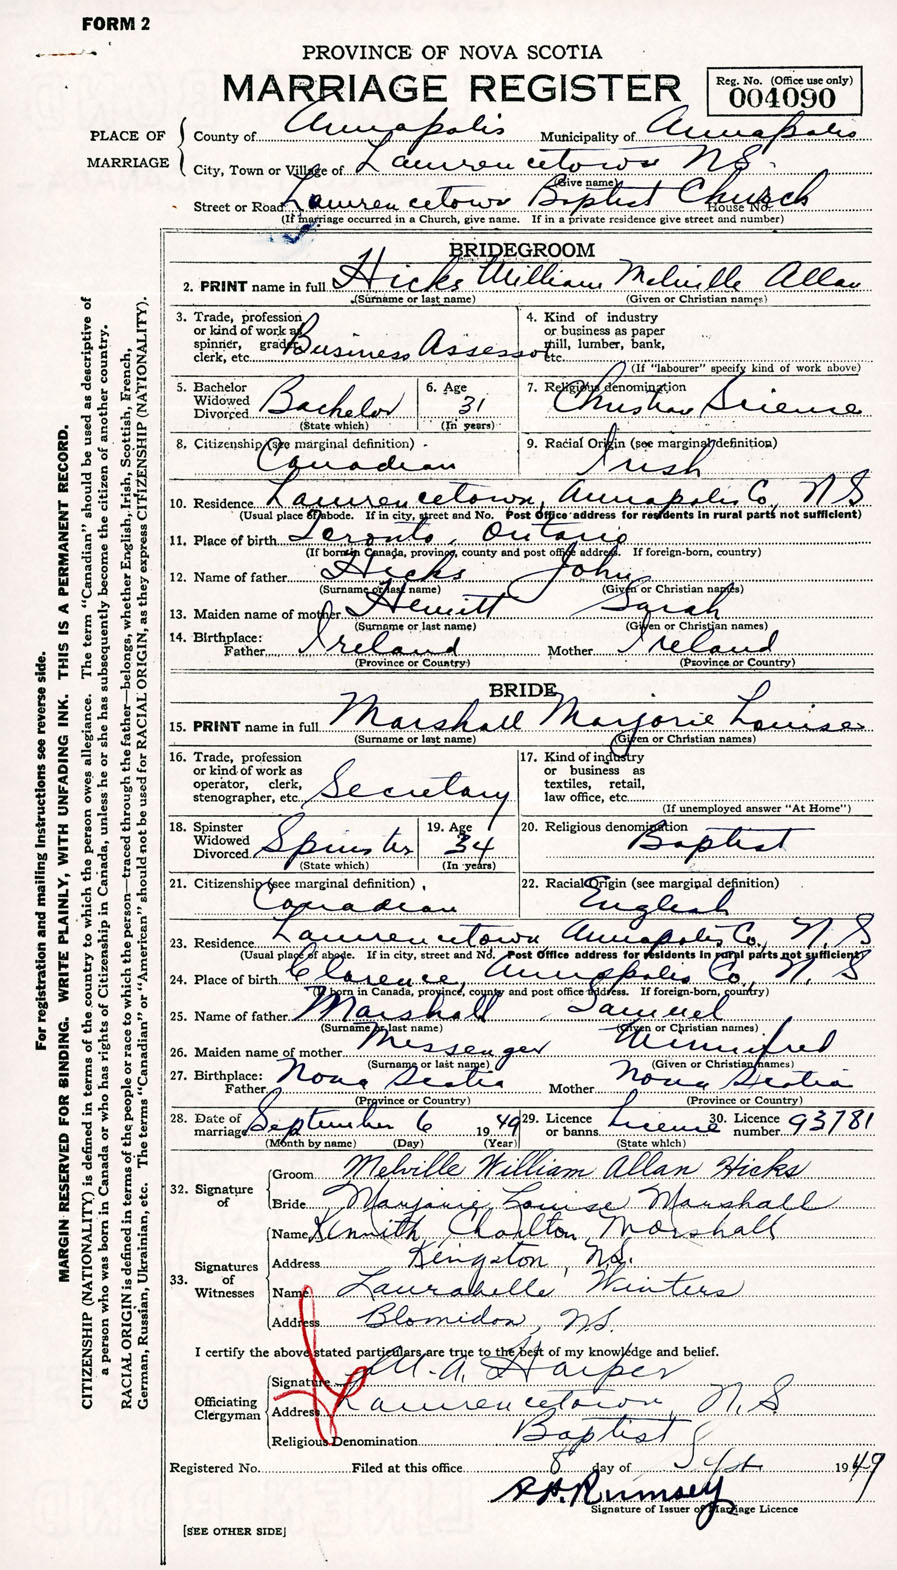 FORM 2
PROVINCE OF NOVA SCOTIA
MARRIAGE REGISTER
Reg. No. (Office use only)
004090
PLACE OF MARRIAGE
County of Annapolis Municipality of Annapolis
City, Town or Village of Lawrencetown N.S.
(Give name)
Street or Road Lawrencetown Baptist Church House No.
(If marriage occurred in a Church, give name. If in a private residence give street and number)
BRIDEGROOM
2. PRINT name in full Hicks William Melville Allan
(Surname or last name) (Given or Christian names)
3. Trade, profession or kind of work as spinner, grader, clerk, etc. Business Assessor
4. Kind of industry or business as paper mill, lumber, bank, etc.
(If "labourer" specify kind of work above)
5. Bachelor Widowed Divorced Bachelor (State which)
6. Age 31 (In years)
7. Religious denomination Christian Science
8. Citizenship (see marginal definition) Canadian
9. Racial Origin (see marginal definition) Irish
10. Residence Lawrencetown, Annapolis Co., N S
(Usual place of abode. If in city, street and No. Post Office address for residents in rural parts not sufficient)
11. Place of birth Toronto, Ontario
(If born in Canada, province, county and post office address. If foreign-born, country)
12. Name of father Hicks John
(Surname or last name) (Given or Christian names)
13. Maiden name of mother Hewitt Sarah
(Surname or last name) (Given or Christian names)
14. Birthplace: Father Ireland Mother Ireland
(Province or Country) (Province or Country)
BRIDE
15. PRINT name in full Marshall Marjorie Louise
(Surname or last name) (Given or Christian names)
16. Trade, profession or kind of work as operator, clerk, stenographer, etc. Secretary
17. Kind of industry or business as textiles, retail, law office, etc.
(If unemployed answer "At Home")
18. Spinster Widowed Divorced Spinster (State which)
19. Age 34 (In years)
20. Religious denomination Baptist
21. Citizenship (see marginal definition) Canadian
22. Racial Origin (see marginal definition) English
23. Residence Lawrencetown Annapolis Co., N. S
(Usual place of abode. If in city, street and No. Post Office address for residents in rural parts not sufficient)
24. Place of birth Clarence, Annapolis Co., N. S
(If born in Canada, province, county and post office address. If foreign-born, country)
25. Name of father Marshall Samuel
(Surname or last name) (Given or Christian names)
26. Maiden name of mother Messenger Winnifred
(Surname or last name) (Given or Christian names)
27. Birthplace: Father Nova Scotia Mother Nova Scotia
(Province or Country) (Province or Country)
28. Date of marriage September 6 1949 29. Licence or banns License 30. Licence number 93781
(Month by name) (Day) (Year) (State which)
32. Signature of
Groom Melville William Allan Hicks
Bride Marjorie Louise Marshall
33. Signatures of Witnesses
Name Kennith Charlton Marshall
Address Kingston, N.S.
Name Laurabelle Winters
Address Blomidon, N.S.
I certify the above stated particulars are true to the best of my knowledge and belief.
Officiating Clergyman
Signature M. A. Harper
Address Lawrencetown, N.S.
Religious Denomination Baptist
Registered No. Filed at this office 8 day of Sept 1949
Rumsey
Signature of Issuer of Marriage Licence
[SEE OTHER SIDE]
For registration and mailing instructions see reverse side.
MARGIN RESERVED FOR BINDING. WRITE PLAINLY, WITH UNFADING INK. THIS IS A PERMANENT RECORD.
CITIZENSHIP (NATIONALITY) is defined in terms of the country to which the person owes allegiance. The term "Canadian" should be used as descriptive of
a person who was born in Canada or who has rights of Citizenship in Canada, unless he or she has subsequently become the citizen of another country.
RACIAL ORIGIN is defined in terms of the people or race to which the person—traced through the father—belongs, whether English, Irish, Scottish, French,
German, Russian, Ukrainian, etc. The terms "Canadian" or "American" should not be used for RACIAL ORIGIN, as they express CITIZENSHIP (NATIONALITY).